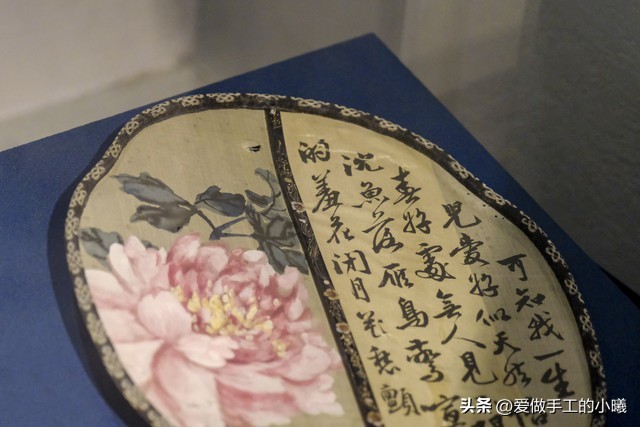 可知我一生
兒愛好似天然
春好處無人見
沉魚落雁鳥驚喧
的羞花閉月花愁顫
头条 @爱做手工的小曦